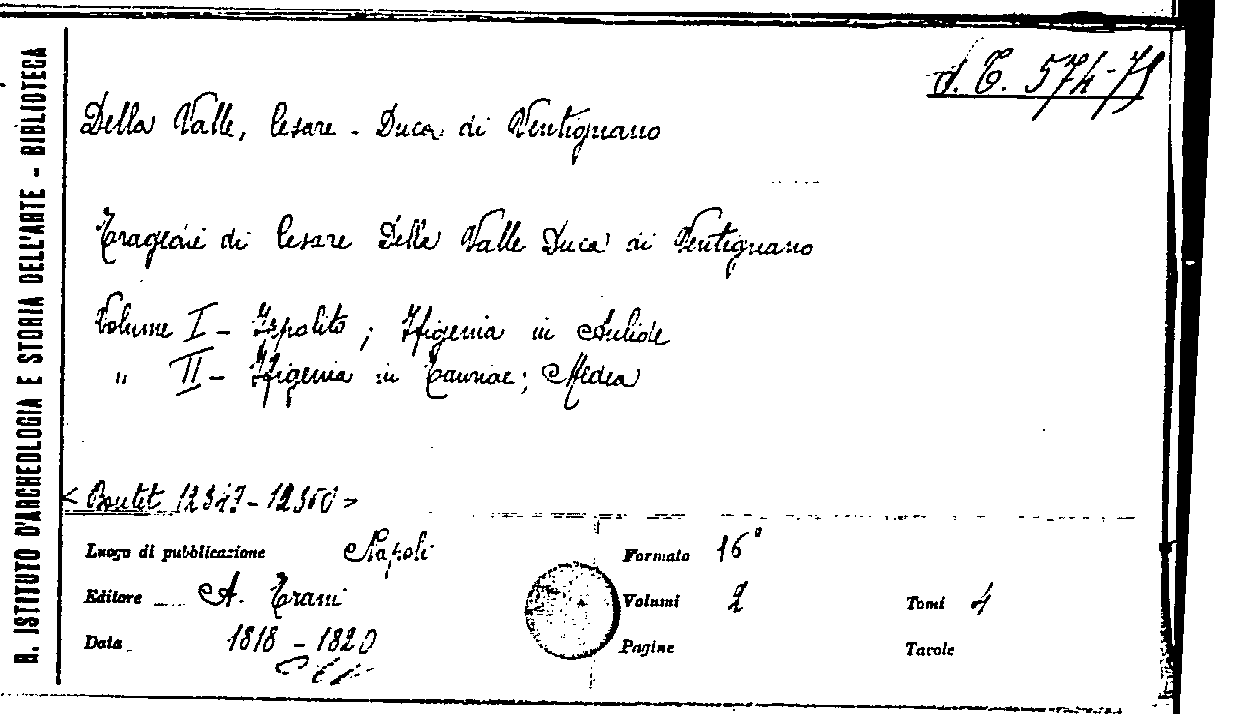 R. ISTITUTO D'ARCHEOLOGIA E STORIA DELL'ARTE - BIBLIOTECA
d. T. 574-75
Della Valle, Cesare - Duca di Ventignano
Tragedie di Cesare Della Valle Duca di Ventignano
Volume I - Ippolito ; Ifigenia in Aulide
" II - Ifigenia in Tauride ; Medea
< Boutet 12347-12350 >
Luogo di pubblicazione Napoli
Formato 16°
Editore A. Trani
Volumi 2
Tomi 4
Data 1818 - 1820
Pagine
Tavole